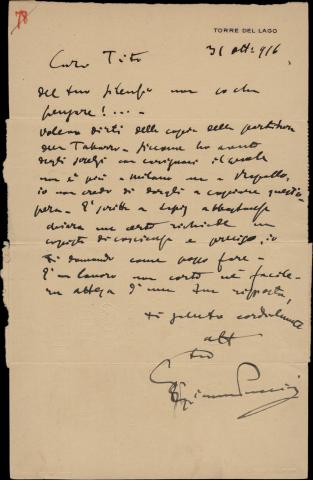 78
TORRE DEL LAGO
31 ott. 916
Caro Tito
del tuo silenzio non so che
pensare!...
volevo dirti della copia della partitura
del Tabarro - siccome ho avuto
degli con il quale
non è più a Milano ma a
io non credo di dargli a copiare quest'o
pera - È scritta a lapis abbastanza
chiara ma certo richiede un
copista di coscienza e preciso, io
ti domando come posso fare -
È un lavoro non corto nè facile -
In attesa d'una tua risposta,
ti saluto cordialmente
aff
tuo
Giacomo Puccini